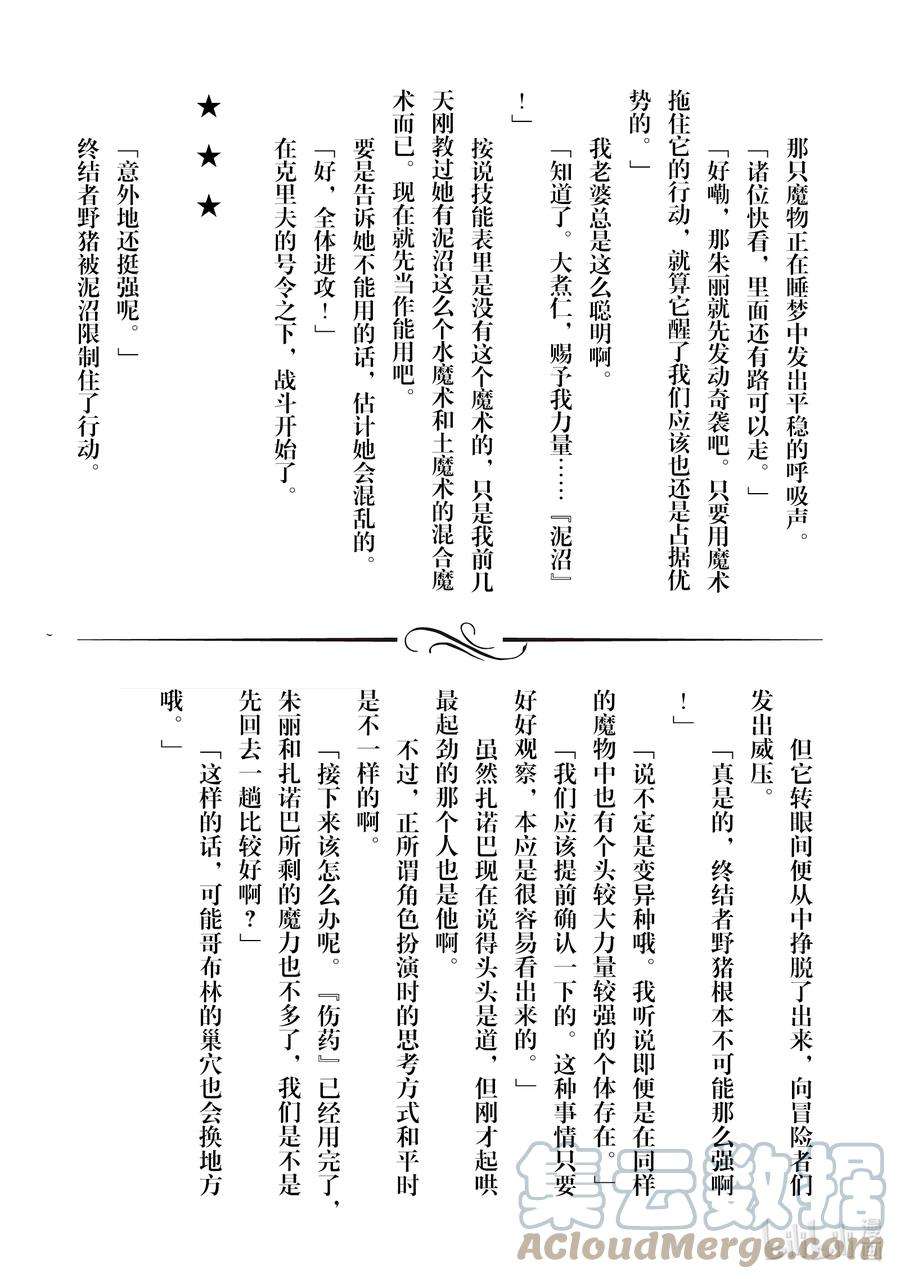 那只魔物正在睡梦中发出平稳的呼吸声。
「诸位快看，里面还有路可以走。」
「好嘞，那朱丽就先发动奇袭吧。只要用魔术
拖住它的行动，就算它醒了我们应该也还是占据优
势的。」
我老婆总是这么聪明啊。
「知道了。大煮仁，赐予我力量……『泥沼』
！」
按说技能表里是没有这个魔术的，只是我前几
天刚教过她有泥沼这么个水魔术和土魔术的混合魔
术而已。现在就先当作能用吧。
要是告诉她不能用的话，估计她会混乱的。
「好，全体进攻！」
在克里夫的号令之下，战斗开始了。
★ ★ ★
「意外地还挺强呢。」
终结者野猪被泥沼限制住了行动。
但它转眼间便从中挣脱了出来，向冒险者们
发出威压。
「真是的，终结者野猪根本不可能那么强啊
！」
「说不定是变异种哦。我听说即便是在同样
的魔物中也有个头较大力量较强的个体存在。」
「我们应该提前确认一下的。这种事情只要
好好观察，本应是很容易看出来的。」
虽然扎诺巴现在说得头头是道，但刚才起哄
最起劲的那个人也是他啊。
不过，正所谓角色扮演时的思考方式和平时
是不一样的啊。
「接下来该怎么办呢。『伤药』已经用完了，
朱丽和扎诺巴所剩的魔力也不多了，我们是不是
先回去一趟比较好啊？」
「这样的话，可能哥布林的巢穴也会换地方
哦。」
集云数据
ACloudMerge.com